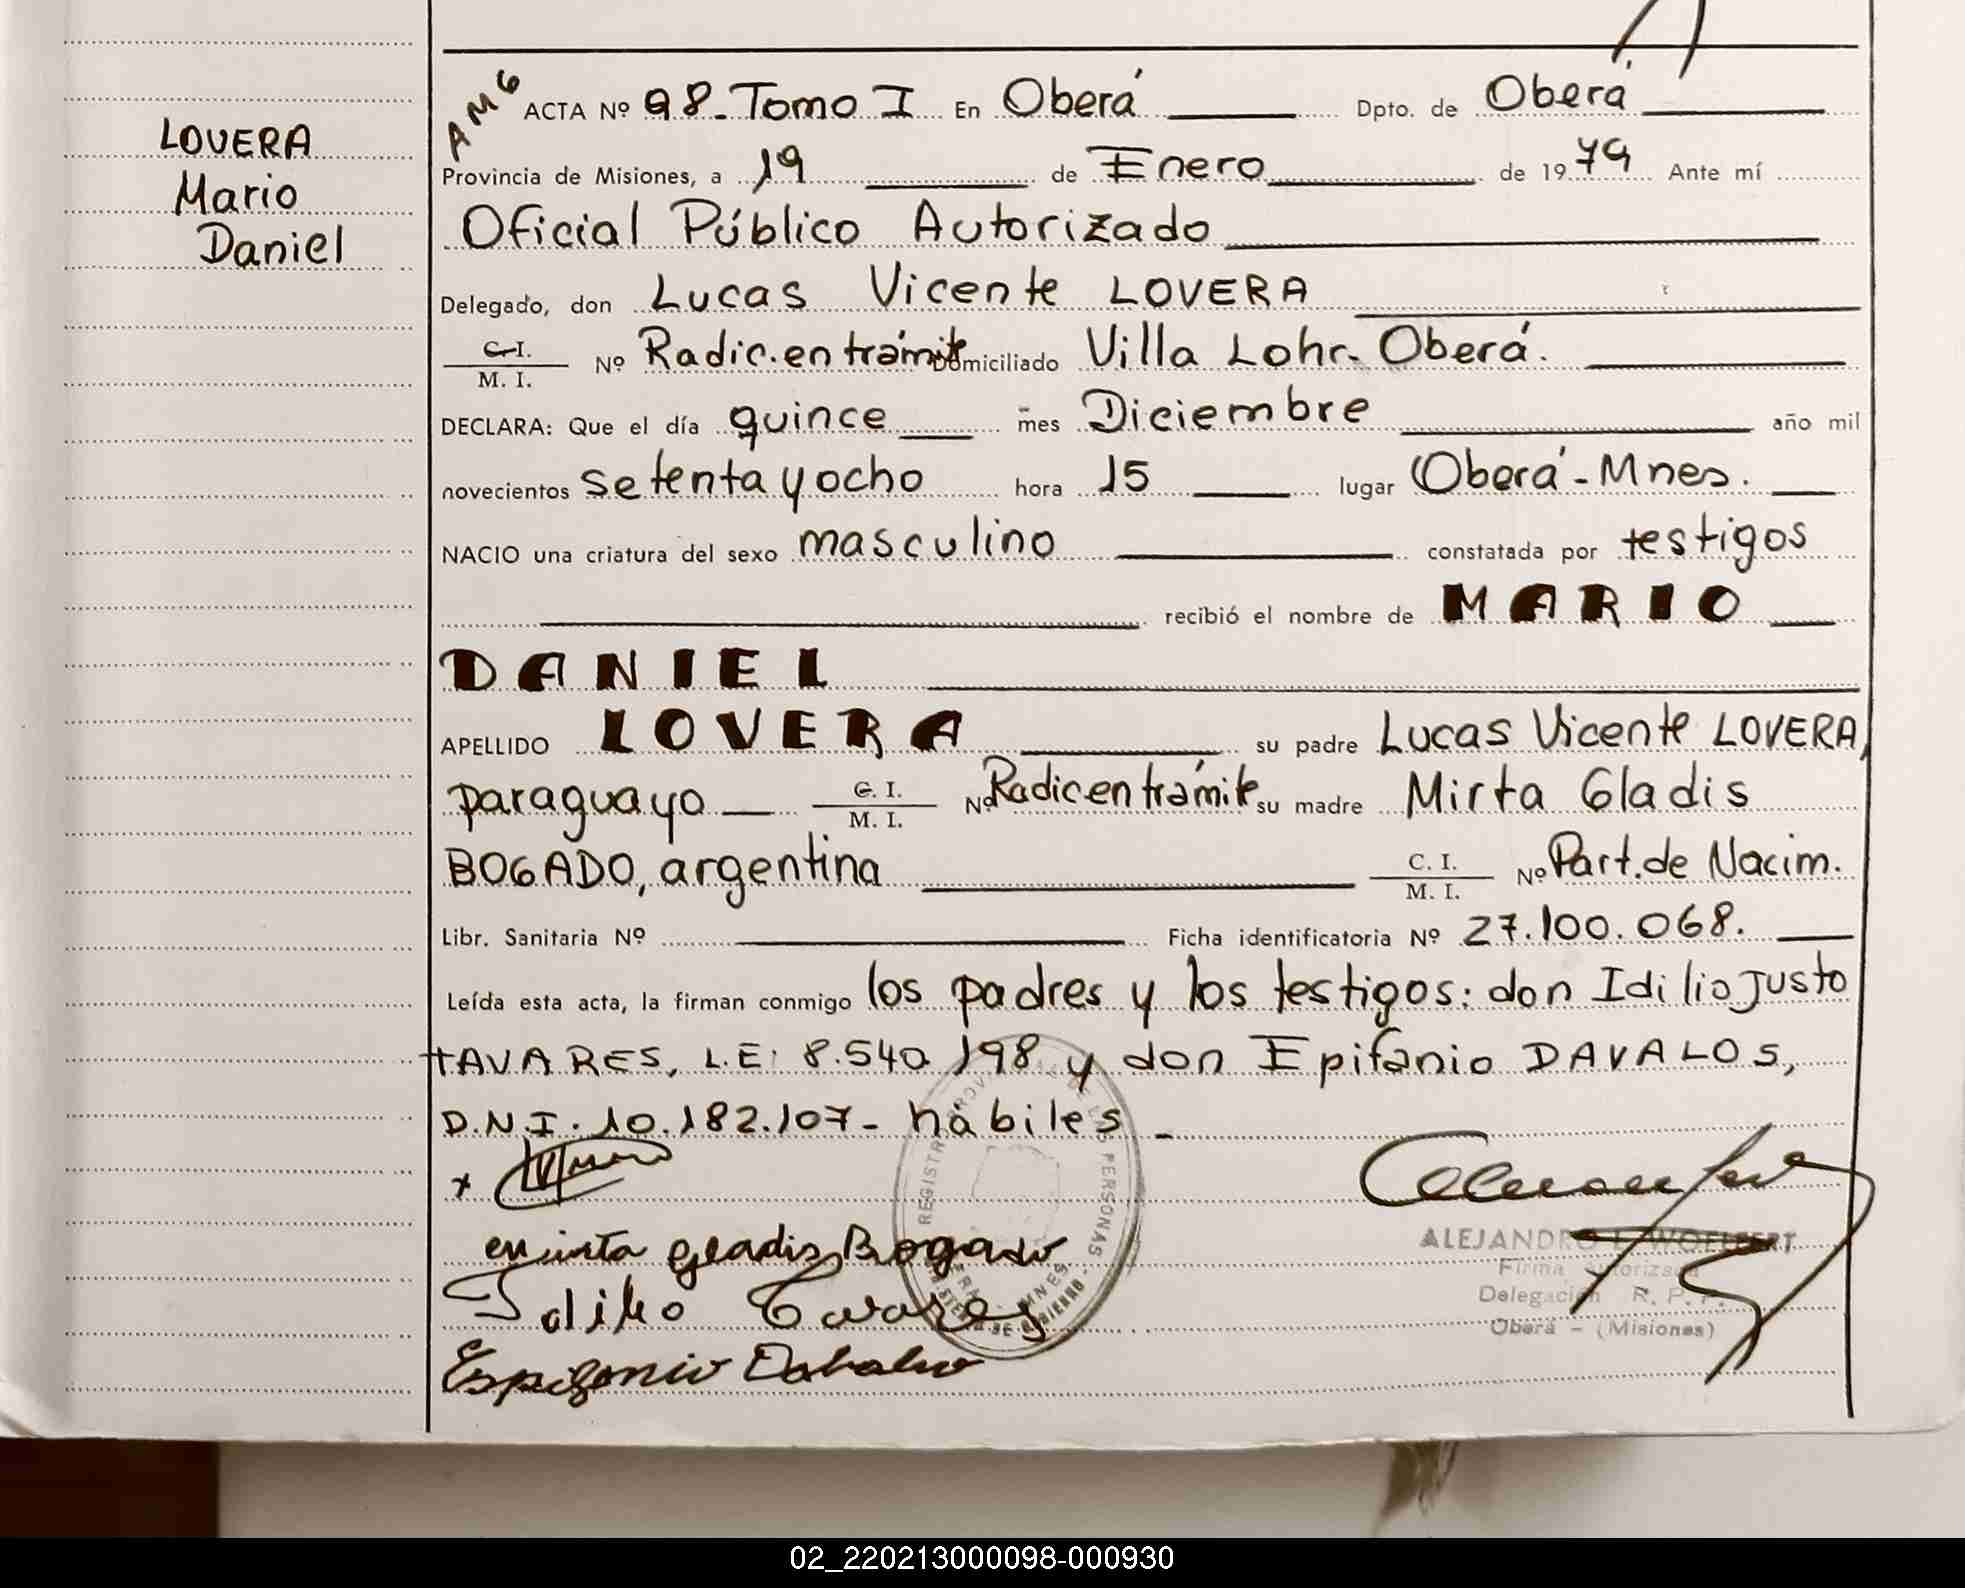 LOVERA
Mario
Daniel
AMG
ACTA Nº 98 - Tomo I En Oberá Dpto. de Oberá
Provincia de Misiones, a 19 de Enero de 1979 Ante mí
Oficial Público Autorizado
Delegado, don Lucas Vicente LOVERA
C. I. / M. I. Nº Radic. en trámite Domiciliado Villa Lohr - Oberá.
DECLARA: Que el día quince mes Diciembre año mil
novecientos setenta y ocho hora 15 lugar Oberá - Mnes.
NACIO una criatura del sexo masculino constatada por testigos
recibió el nombre de MARIO
DANIEL
APELLIDO LOVERA su padre Lucas Vicente LOVERA,
paraguayo C. I. / M. I. Nº Radic en trámite su madre Mirta Gladis
BOGADO, argentina C. I. / M. I. Nº Part. de Nacim.
Libr. Sanitaria Nº Ficha identificatoria Nº 27.100.068.
Leída esta acta, la firman conmigo los padres y los testigos: don Idilio Justo
TAVARES, L.E. 8.540.198 y don Epifanio DAVALOS,
D.N.I. 10.182.107 - hábiles -
x
gladis Bogado
Idilio Tavares
ALEJANDRO L. WOELFERT
Firma Autorizada
Delegación R. P. P.
Oberá - (Misiones)
02_220213000098-000930